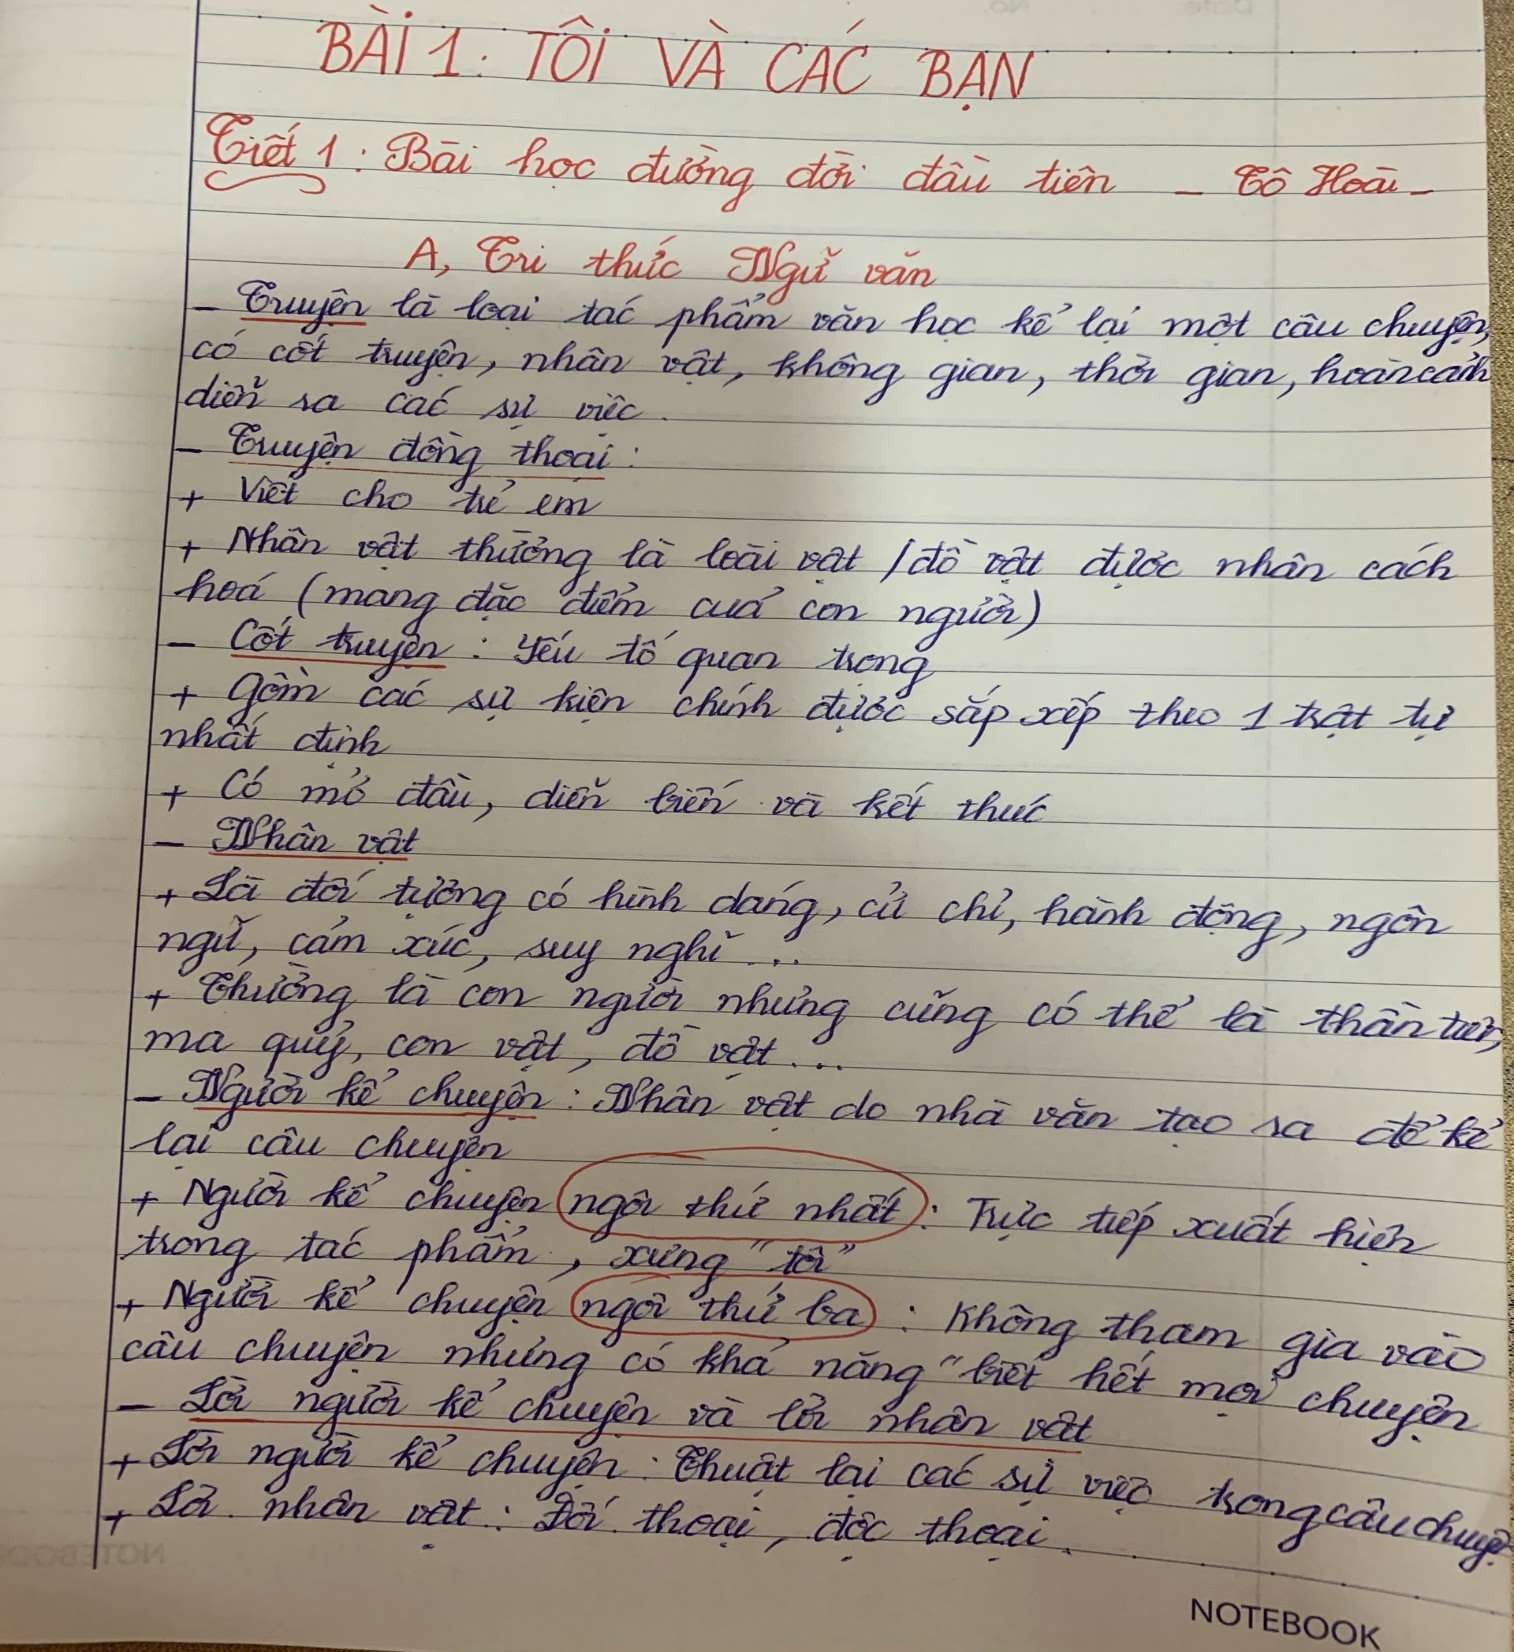 BÀI 1: TÔI VÀ CÁC BẠN
Tiết 1: Bài học đường đời đầu tiên - Tô Hoài -
A, Tri thức Ngữ văn
- Truyện là loại tác phẩm văn học kể lại một câu chuyện,
có cốt truyện, nhân vật, không gian, thời gian, hoàn cảnh
diễn ra các sự việc.
- Truyện đồng thoại:
+ Viết cho trẻ em
+ Nhân vật thường là loài vật / đồ vật được nhân cách
hoá (mang đặc điểm của con người)
- Cốt truyện: Yếu tố quan trọng
+ Gồm các sự kiện chính được sắp xếp theo 1 trật tự
nhất định
+ Có mở đầu, diễn biến và kết thúc
- Nhân vật
+ Là đối tượng có hình dáng, cử chỉ, hành động, ngôn
ngữ, cảm xúc, suy nghĩ...
+ Thường là con người nhưng cũng có thể là thần tiên,
ma quỷ, con vật, đồ vật...
- Người kể chuyện: Nhân vật do nhà văn tạo ra để kể
lại câu chuyện
+ Người kể chuyện ngôi thứ nhất: Trực tiếp xuất hiện
trong tác phẩm, xưng "tôi"
+ Người kể chuyện ngôi thứ ba: Không tham gia vào
câu chuyện nhưng có khả năng "biết hết mọi chuyện
- Lời người kể chuyện và lời nhân vật
+ Lời người kể chuyện: Thuật lại các sự việc trong câu chuyện
+ Lời nhân vật: Đối thoại, độc thoại.
NOTEBOOK